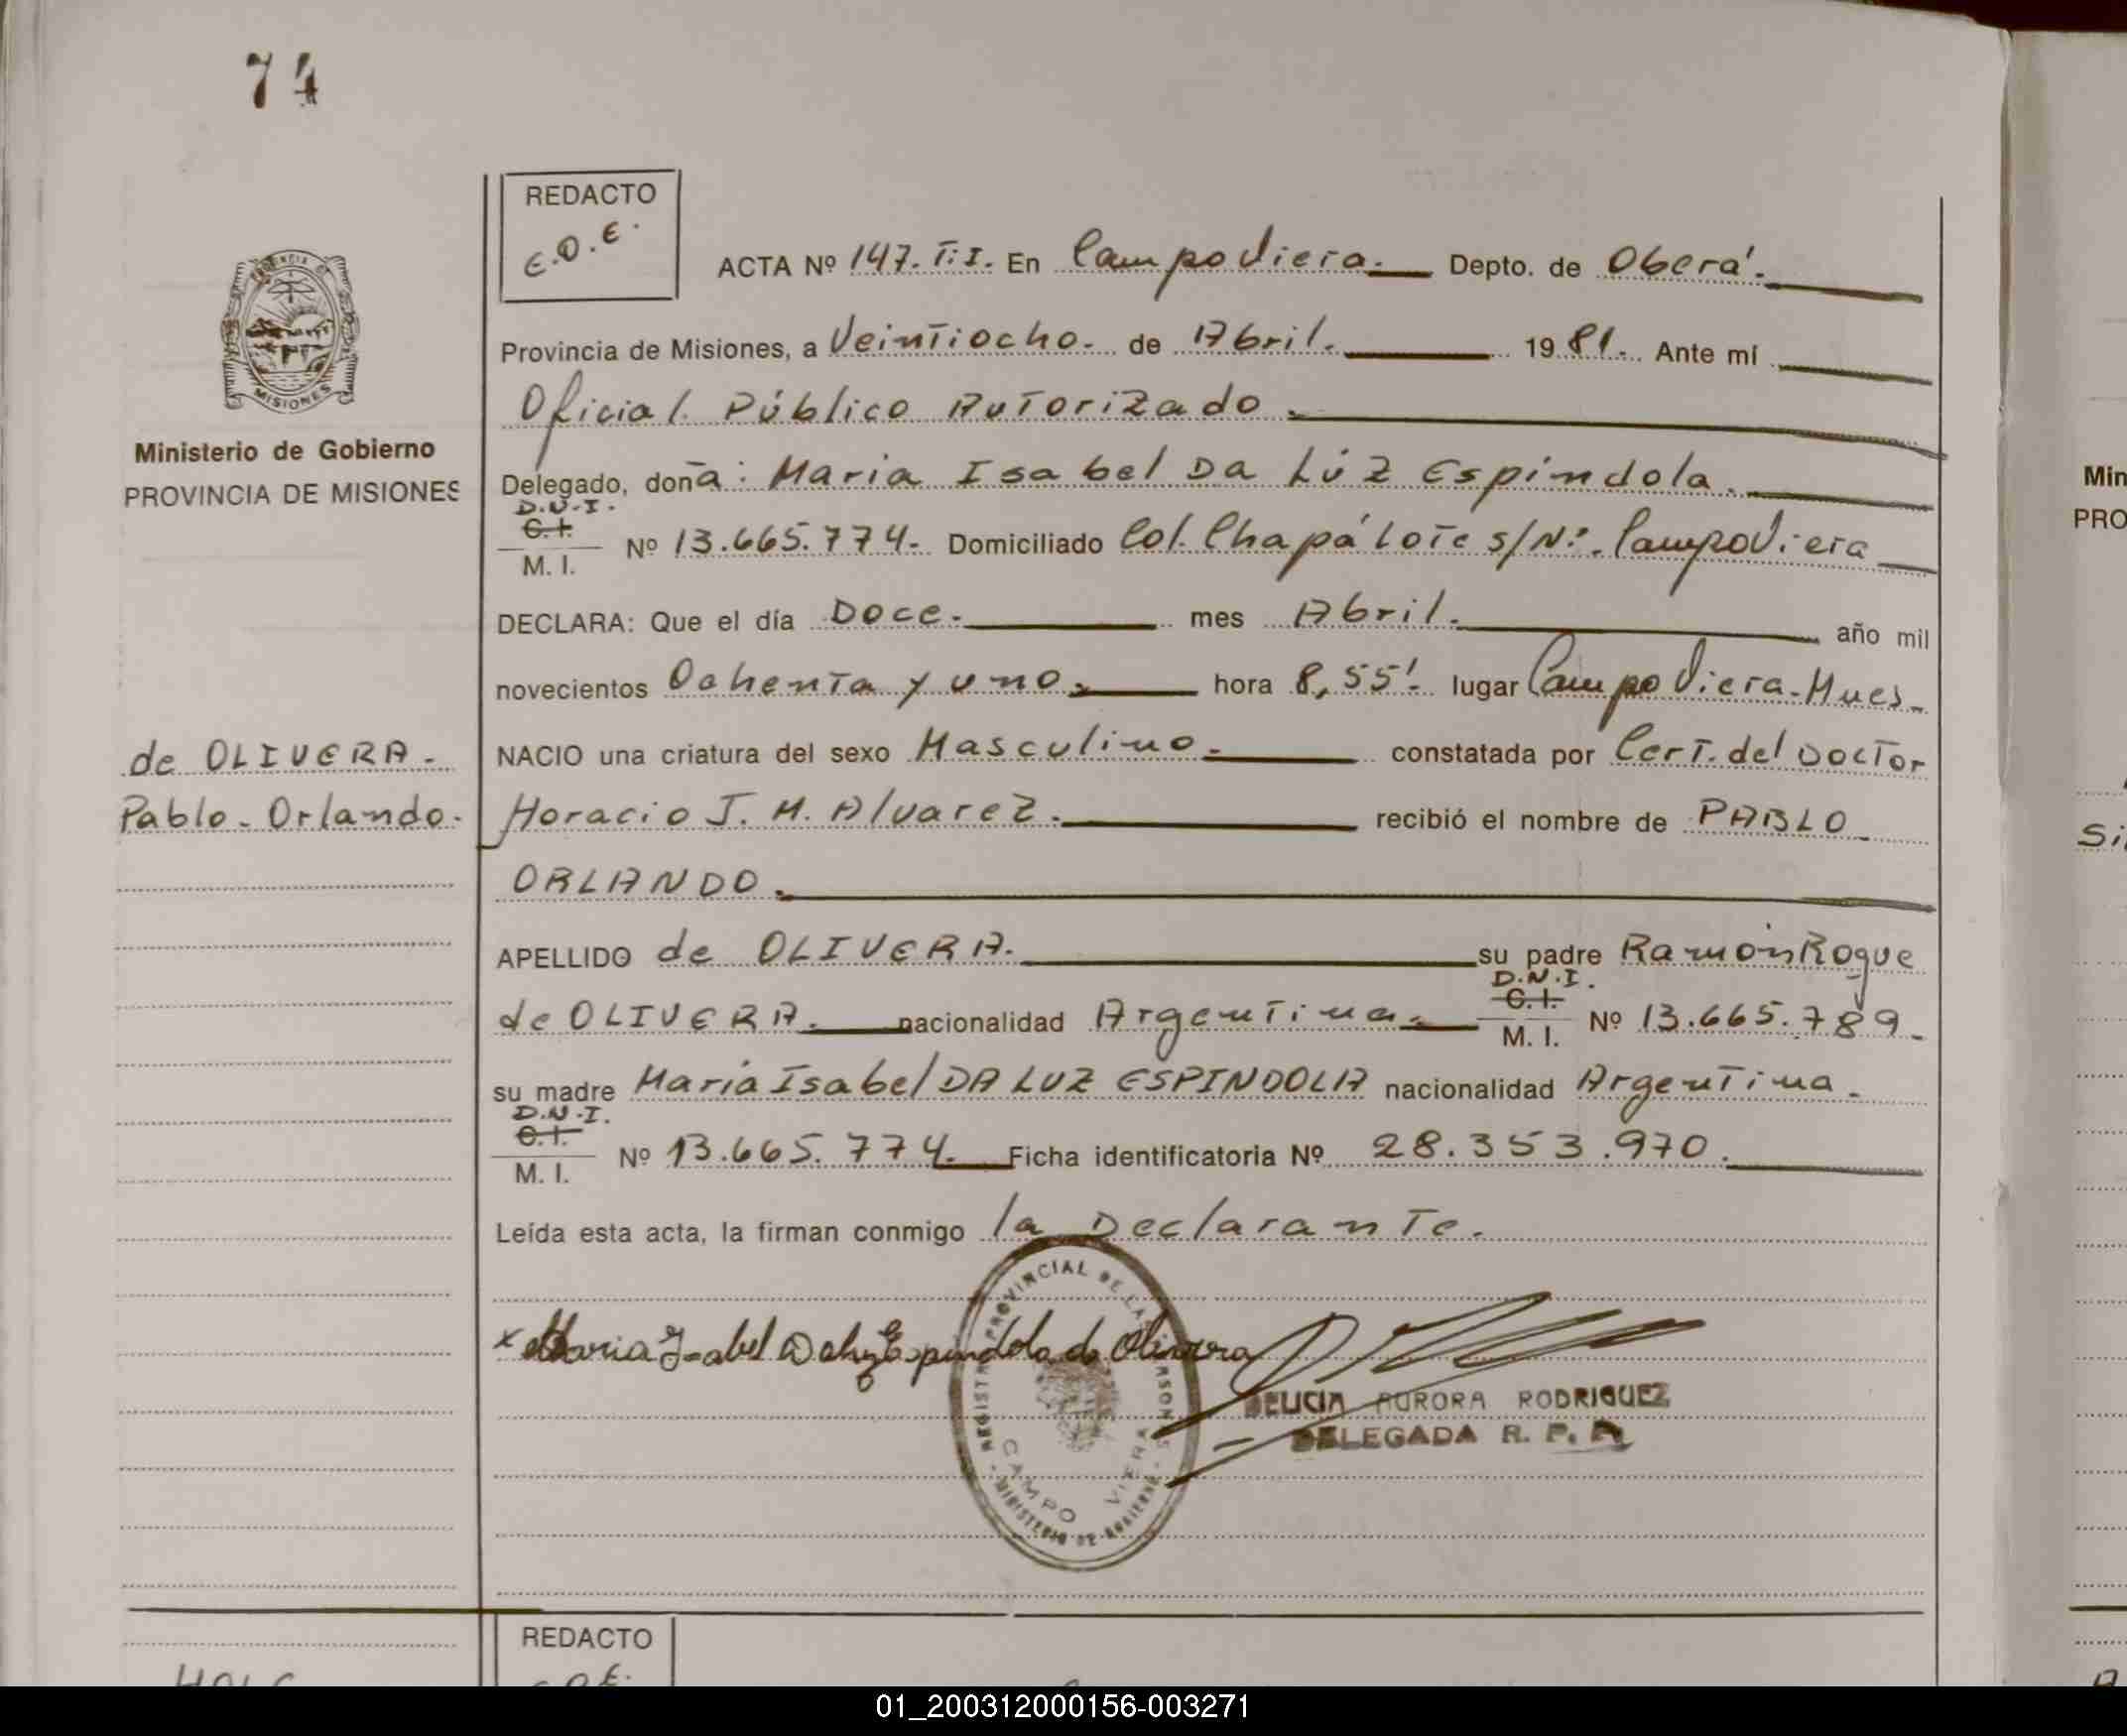 74
REDACTO
E.O.E.
ACTA Nº 147. T:I. En Campo Viera. Depto. de Oberá.
Provincia de Misiones, a Veintiocho. de Abril. 1981. Ante mí
Oficial Público Autorizado.
Delegado, doña: Maria Isabel Da Lúz Espíndola.
D.N.I.
C.I.
M. I. Nº 13.665.774. Domiciliado Col. Chapá Lote s/Nº. Campo Viera
DECLARA: Que el día Doce. mes Abril. año mil
novecientos Ochenta y uno. hora 8,55'. lugar Campo Viera-Mnes.
NACIO una criatura del sexo Masculino. constatada por Cert. del Doctor
Horacio J. M. Alvarez. recibió el nombre de PABLO
ORLANDO.
APELLIDO de OLIVERA. su padre Ramón Roque
de OLIVERA. nacionalidad Argentina. D.N.I.
C.I.
M. I. Nº 13.665.789.
su madre María Isabel DA LUZ ESPINDOLA nacionalidad Argentina.
D.N.I.
C.I.
M. I. Nº 13.665.774. Ficha identificatoria Nº 28.353.970.
Leída esta acta, la firman conmigo la Declarante.
x Maria Isabel Da Luz Espindola de Olivera
DELICIA AURORA RODRIGUEZ
DELEGADA R. P. P.
REGISTRO PROVINCIAL DE LAS PERSONAS
CAMPO VIERA
MINISTERIO DE GOBIERNO
PROVINCIA DE
MISIONES
Ministerio de Gobierno
PROVINCIA DE MISIONES
de OLIVERA.
Pablo-Orlando.
REDACTO
Min
PRO
Si
01_200312000156-003271